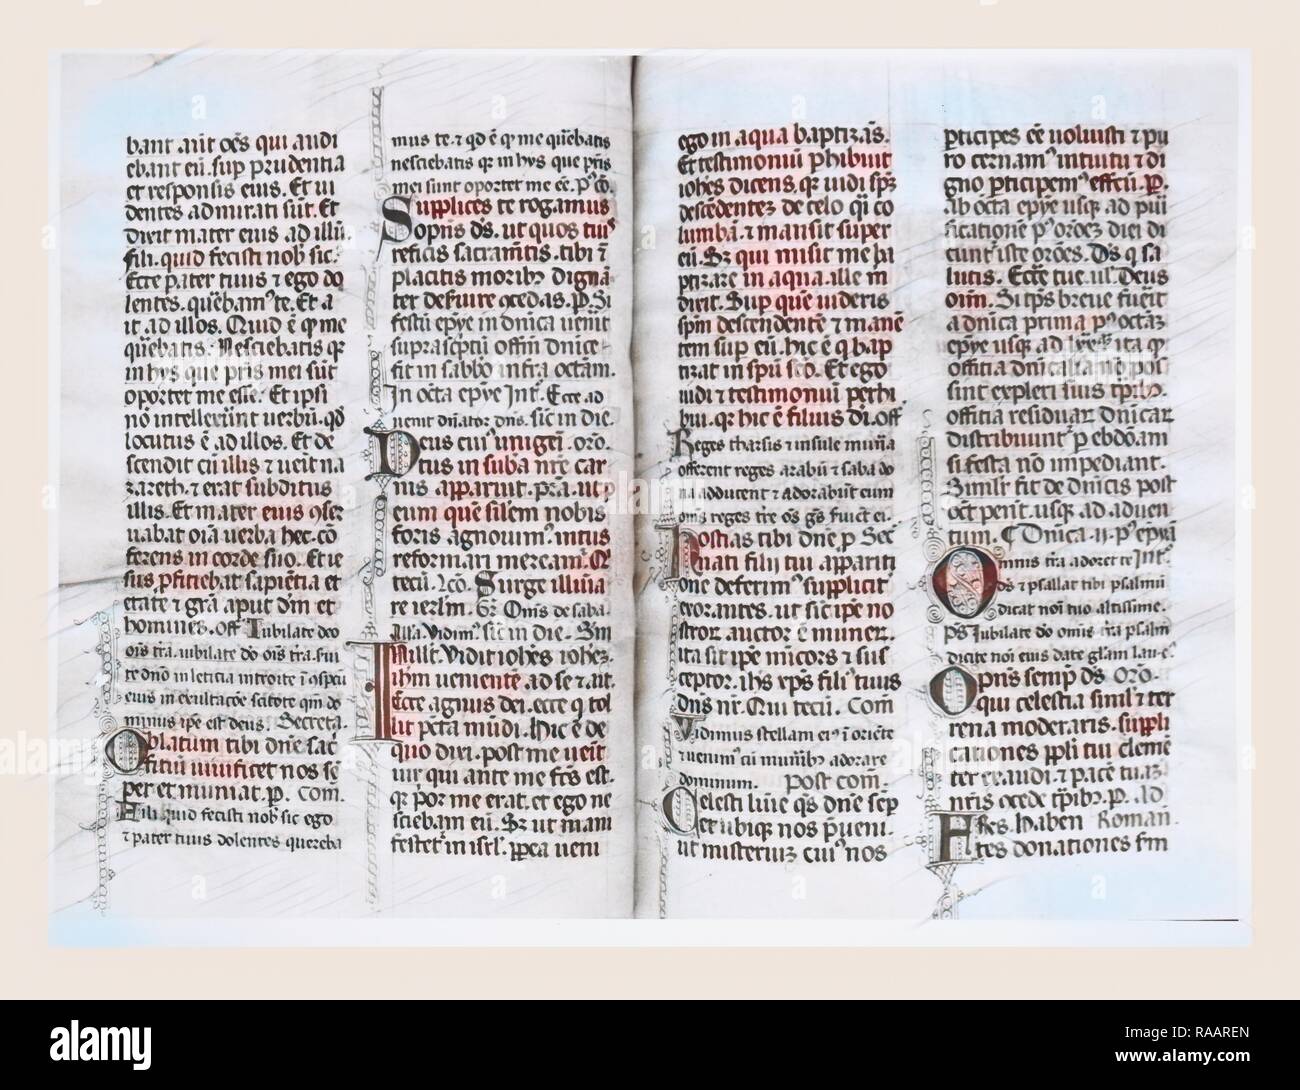 bant aut oēs qui audi
ebant eū. sup prudentia
et responsis eius. Et ui
dentes admirati sūt. Et
dixit mater eius ad illū.
fili. quid fecisti nob sic.
Ecce pater tuus et ego do
lentes. querebam te. Et a
it ad illos. Quid ē qr me
querebatis. Nesciebatis qr
in hys que pris mei sūt
oportet me esse. Et ipsi
nō intellexerūt uerbū. qd
locutus ē ad illos. Et de
scendit cū illis et ueīt na
zareth. et erat subditus
illis. Et mater eius cser
uabat oīa uerba hec. cō
ferens in corde suo. Et ie
sus pficiebat sapiētia et
etate et grā aput dm et
homines. Off Iubilate deo
oīs tra. iubilate do oīs tra. sui
te dno in leticia introite ī cspecu
eius in exultacōe scitote qm do
minus ipe est deus. Secreta.
Oblatum tibi dne sac
ficiū uiuificet nos se
per et muniat. P. Com.
Fili quid fecisti nob sic ego
et pater tuus dolentes quereba
mus te. et qd ē qr me querebatis
nesciebatis qr in hys que pris
mei sunt oportet me eē. P Co.
Supplices te rogamus
opris ds. ut quos tuis
reficis sacramtis. tibi et
placitis moribus dignan
ter deseruire cedas. P. Si
festū epye in dnica uenit
suprascptū offm dnice
fit in sabbo infra octam.
In octa epye Int. Ecce ad
uenit dnator dns. sic in die.
Deus cuius unigeti. Oro.
tus in suba nre car
nis apparuit. pra. ut p
eum que silem nobis
foris agnouimus. intus
reformari mereamur. Q
tecū. Lco. Surge illuia
re ierlm. Gr Oms de saba.
Alla. Vidimus sic in die. Sm
In illt. Vidit iohes iohem.
ihm uenientē ad se et ait.
Ecce agnus dei. ecce q tol
lit pcta mūdi. Hic ē de
quo dixi. post me ueīt
uir qui ante me fcs est.
qr por me erat. et ego ne
sciebam eū. Sz ut mani
festetur in isrl. ppea ueni
ego in aqua baptizas.
Et testimoniū phibuit
iohes dicens. qr uidi spm
descedentez de celo qi co
lumbā. et mansit super
eū. Sz qui misit me ba
ptizare in aqua. ille m
dixit. Sup que uideris
spm descendentē et manē
tem sup eū. hic ē q bap
tizat in spu sco. Et ego
uidi et testimoniū perhi
bui. qr hic ē filius di. off
Reges tharsis et insule munera
offerent reges arabū et saba do
na adducent et adorabūt eum
oms reges tre oēs gēs fuiēt ei.
Hostias tibi dne p Sec
nati filii tui appariti
one deferimus supplicit
exorantes. ut sic ipe no
stror auctor ē muner.
ita sit ipe misericors et sus
ceptor. ihs xps filius tuus
dns nr. Qui tecū. Com
Vidimus stellam eius ī oriēte
et uenimus cū munibus adorare
dominum. Post com.
Celesti lūne qs dne semp
et ubique nos pueni.
ut misteriuz cuius nos
pticipes eē uoluisti et pu
ro cernamus intuitu et di
gno pticipemus effectu. P.
Ab octa epye usque ad puri
ficatione post orōez diei di
cunt iste orōes. Ds q sa
lutis. Ecce tue. ul Deus
oim. Si tps breue fuerit
a dnica prima post octa
epye usque ad lxx ita qr
officia dnicalia nō pos
sint expleri suis tpribus.
officia residuar dnicar
distribuunt p ebdōam
si festa nō impediant.
Similr fit de dnicis post
oct pent. usque ad aduen
tum. Dnica .ii. post epyā
Omnis tra adoret te Int.
ds et psallat tibi psalmū
dicat noi tuo altissime.
Ps Iubilate do omis tra psalm
dicite noi eius date glam lau. e.
Opris semp ds Oro.
qui celestia simul et ter
rena moderaris. suppli
cationes ppli tui clemē
ter exaudi. et pacē tuaz
nris cede tpibus. P. Ad
Fres. Haben Roman.
tes donationes fm
alamy
Image ID: RAAREN
www.alamy.com